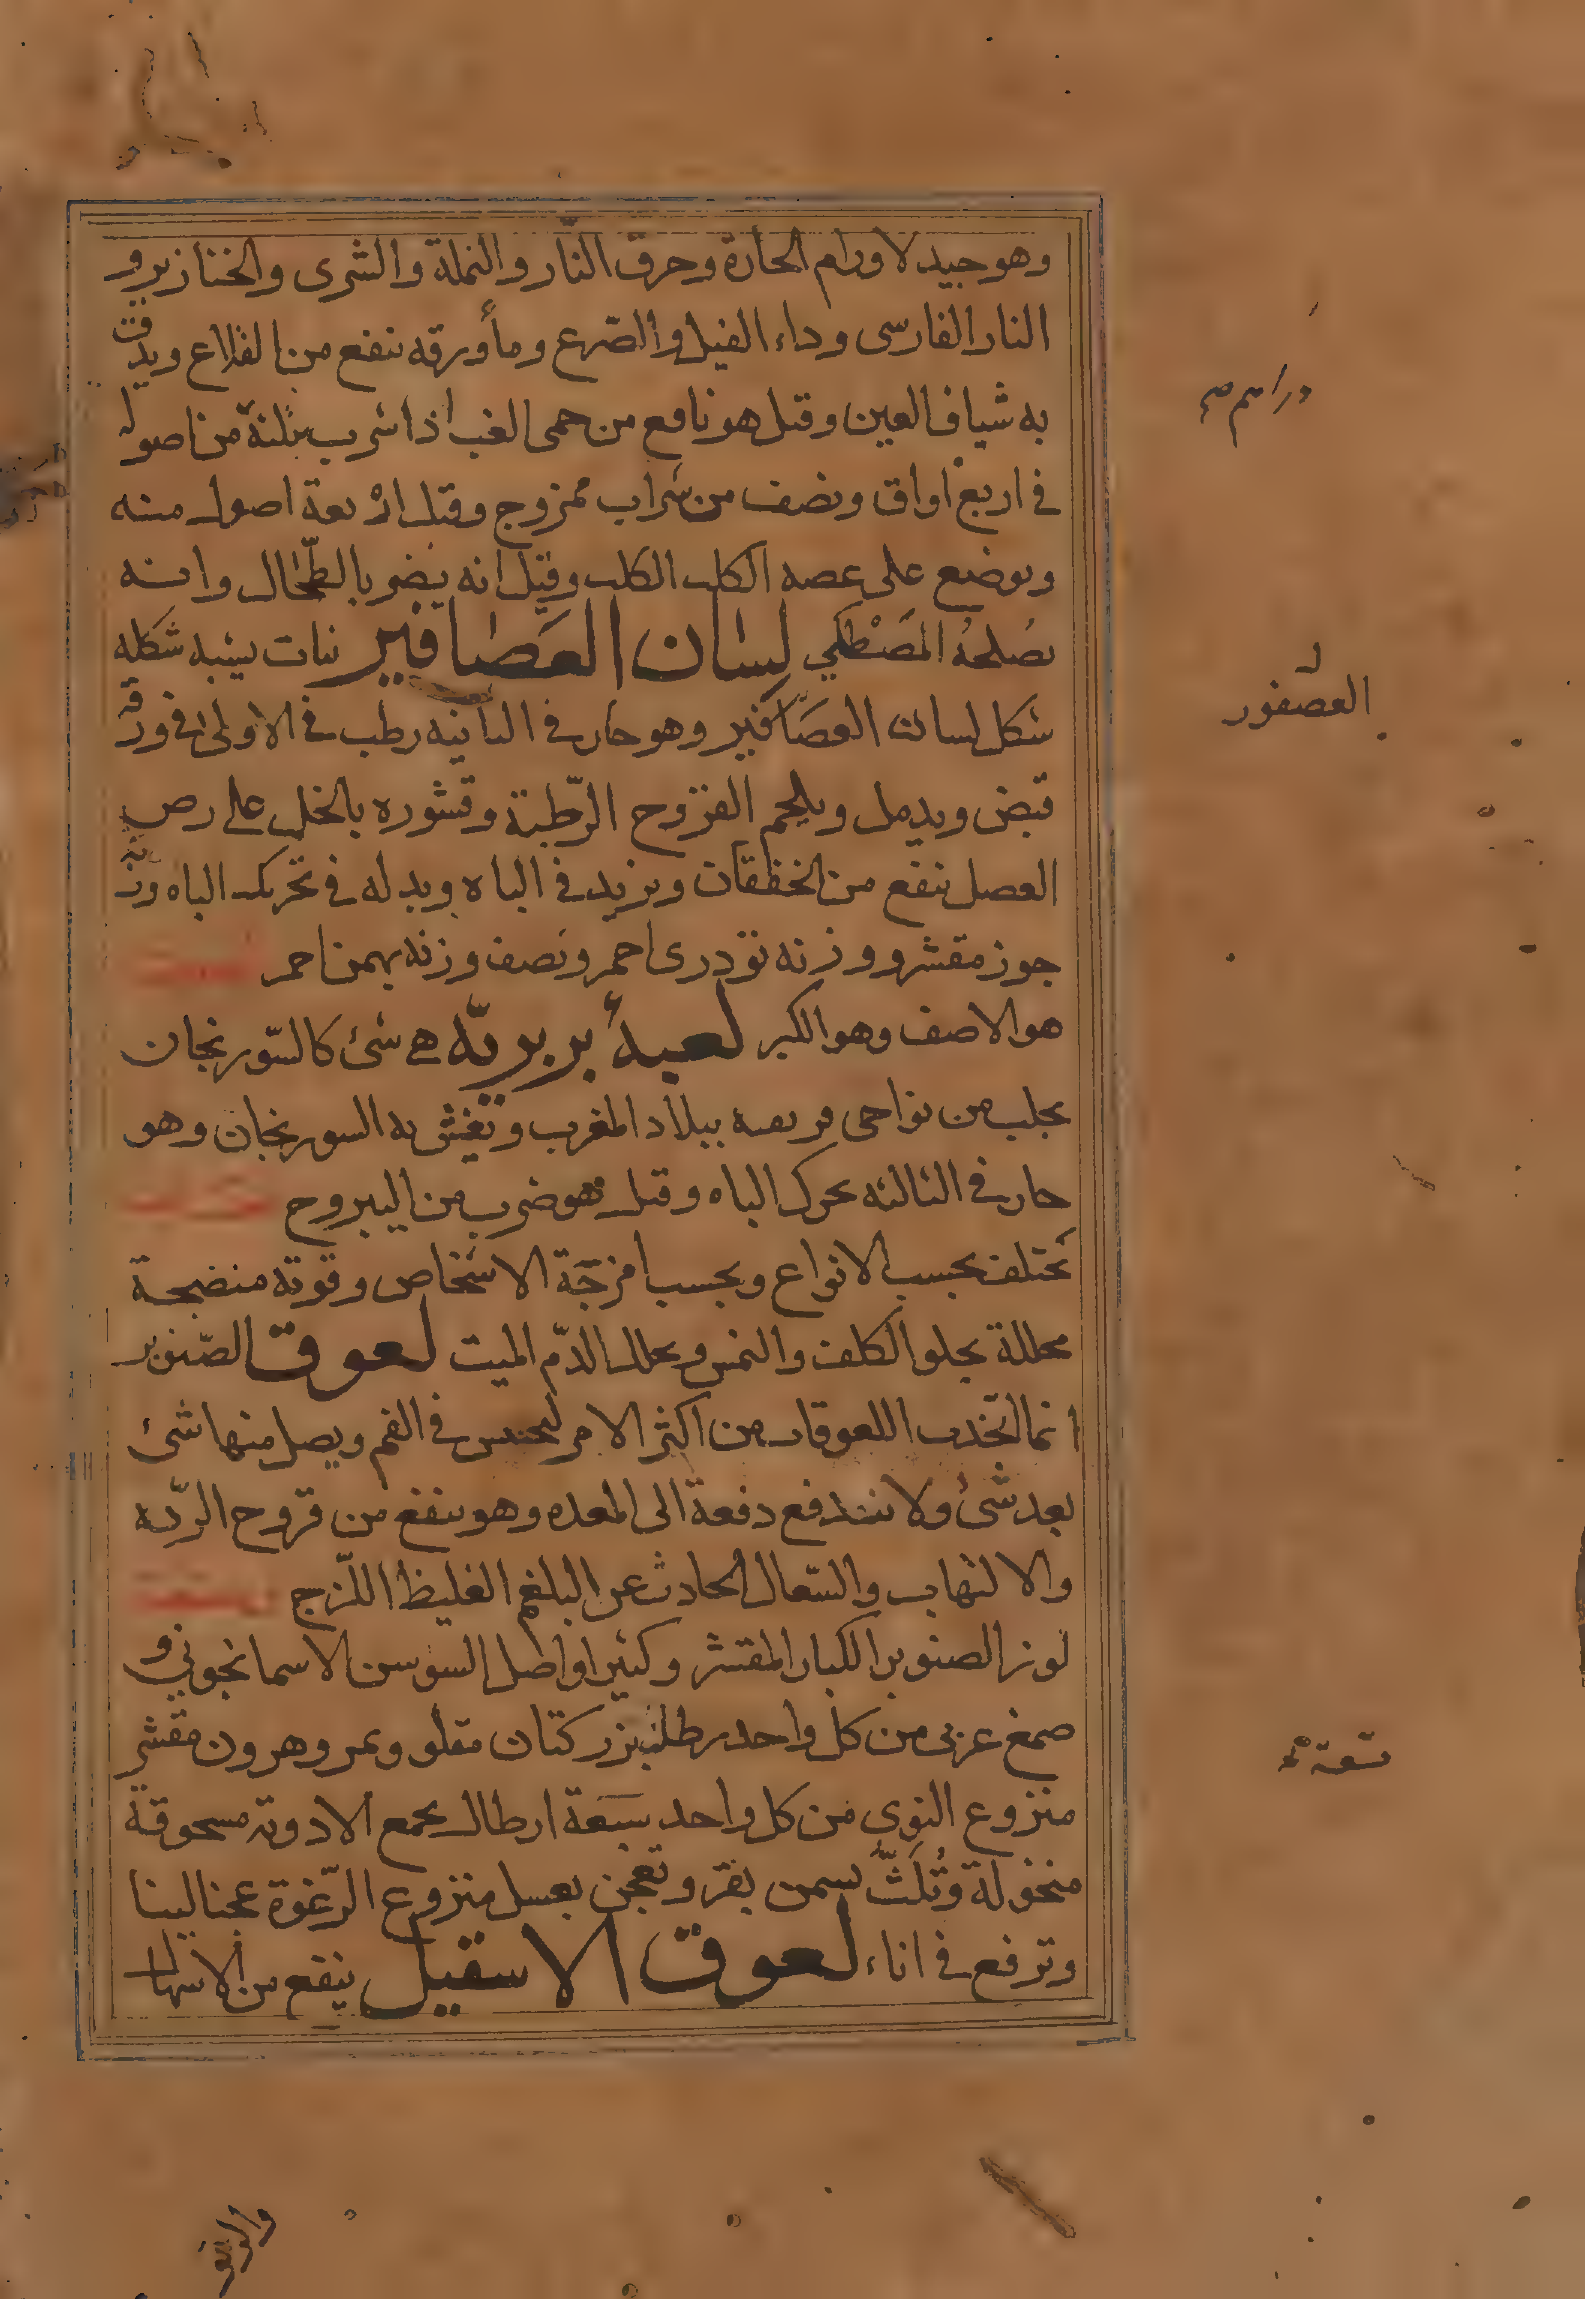 وهو جيد لاورام الحارة وحرق النار والنملة والشرى والخنازير و
النار الفارسى وداء الفيل والصرع وماورقه ينفع من القلاع ويدق
به شياف العين وقيل هو نافع من حمى الغب اذا شرب ثلثة من اصوله
فى اربع اواق ونصف من شراب ممزوج وقيل اربعة اصول منه
ويوضع على عضه الكلب الكلب وقيل انه يضر بالطحال وانه
يصلحه المصطكي لسان العصافير نبات يشبه شكله
شكل لسان العصافير وهو حار فى الثانيه رطب فى الاولى فى ورقه
قبض ويدمل ويلحم القروح الرطبة وقشوره بالخل على رض
العصل ينفع من الخفقان ويزيد فى الباه وبدله فى تحريك الباه وزنه
جوز مقشر ووزنه تودرى احمر ونصف وزنه بهمن احمر
هو الاصف وهو الكبر لعبة بربرية هى شئ كالسورنجان
يجلب من نواحى افريقيه ببلاد المغرب وتغش به السورنجان وهو
حار فى الثالثه يحرك الباه وقيل هو ضرب من اليبروح
يختلف بحسب الانواع وبحسب امزجة الاشخاص وقوته منضجة
محللة يجلو الكلف والنمش ويحلل الدم الميت لعوق الصنوبر
انما اتخذت اللعوقات من اكثر الامر لتحتبس فى الفم ويصل منها شئ
بعد شئ ولا تندفع دفعة الى المعده وهو ينفع من قروح الريه
والالتهاب والسعال الحادث عن البلغم الغليظ اللزج
لوز الصنوبر الكبار المقشر وكثيرا واصل السوسن الاسمانجوني و
صمغ عربى من كل واحد رطل بزر كتان مقلو وتمر وهرون مقشر
منزوع النوى من كل واحد سبعة ارطال يجمع الادوية مسحوقة
منخولة وتلت بسمن بقر وتعجن بعسل منزوع الرغوة عجنا لينا
وترفع فى اناء لعوق الاسقيل ينفع من الانتها
العصفور